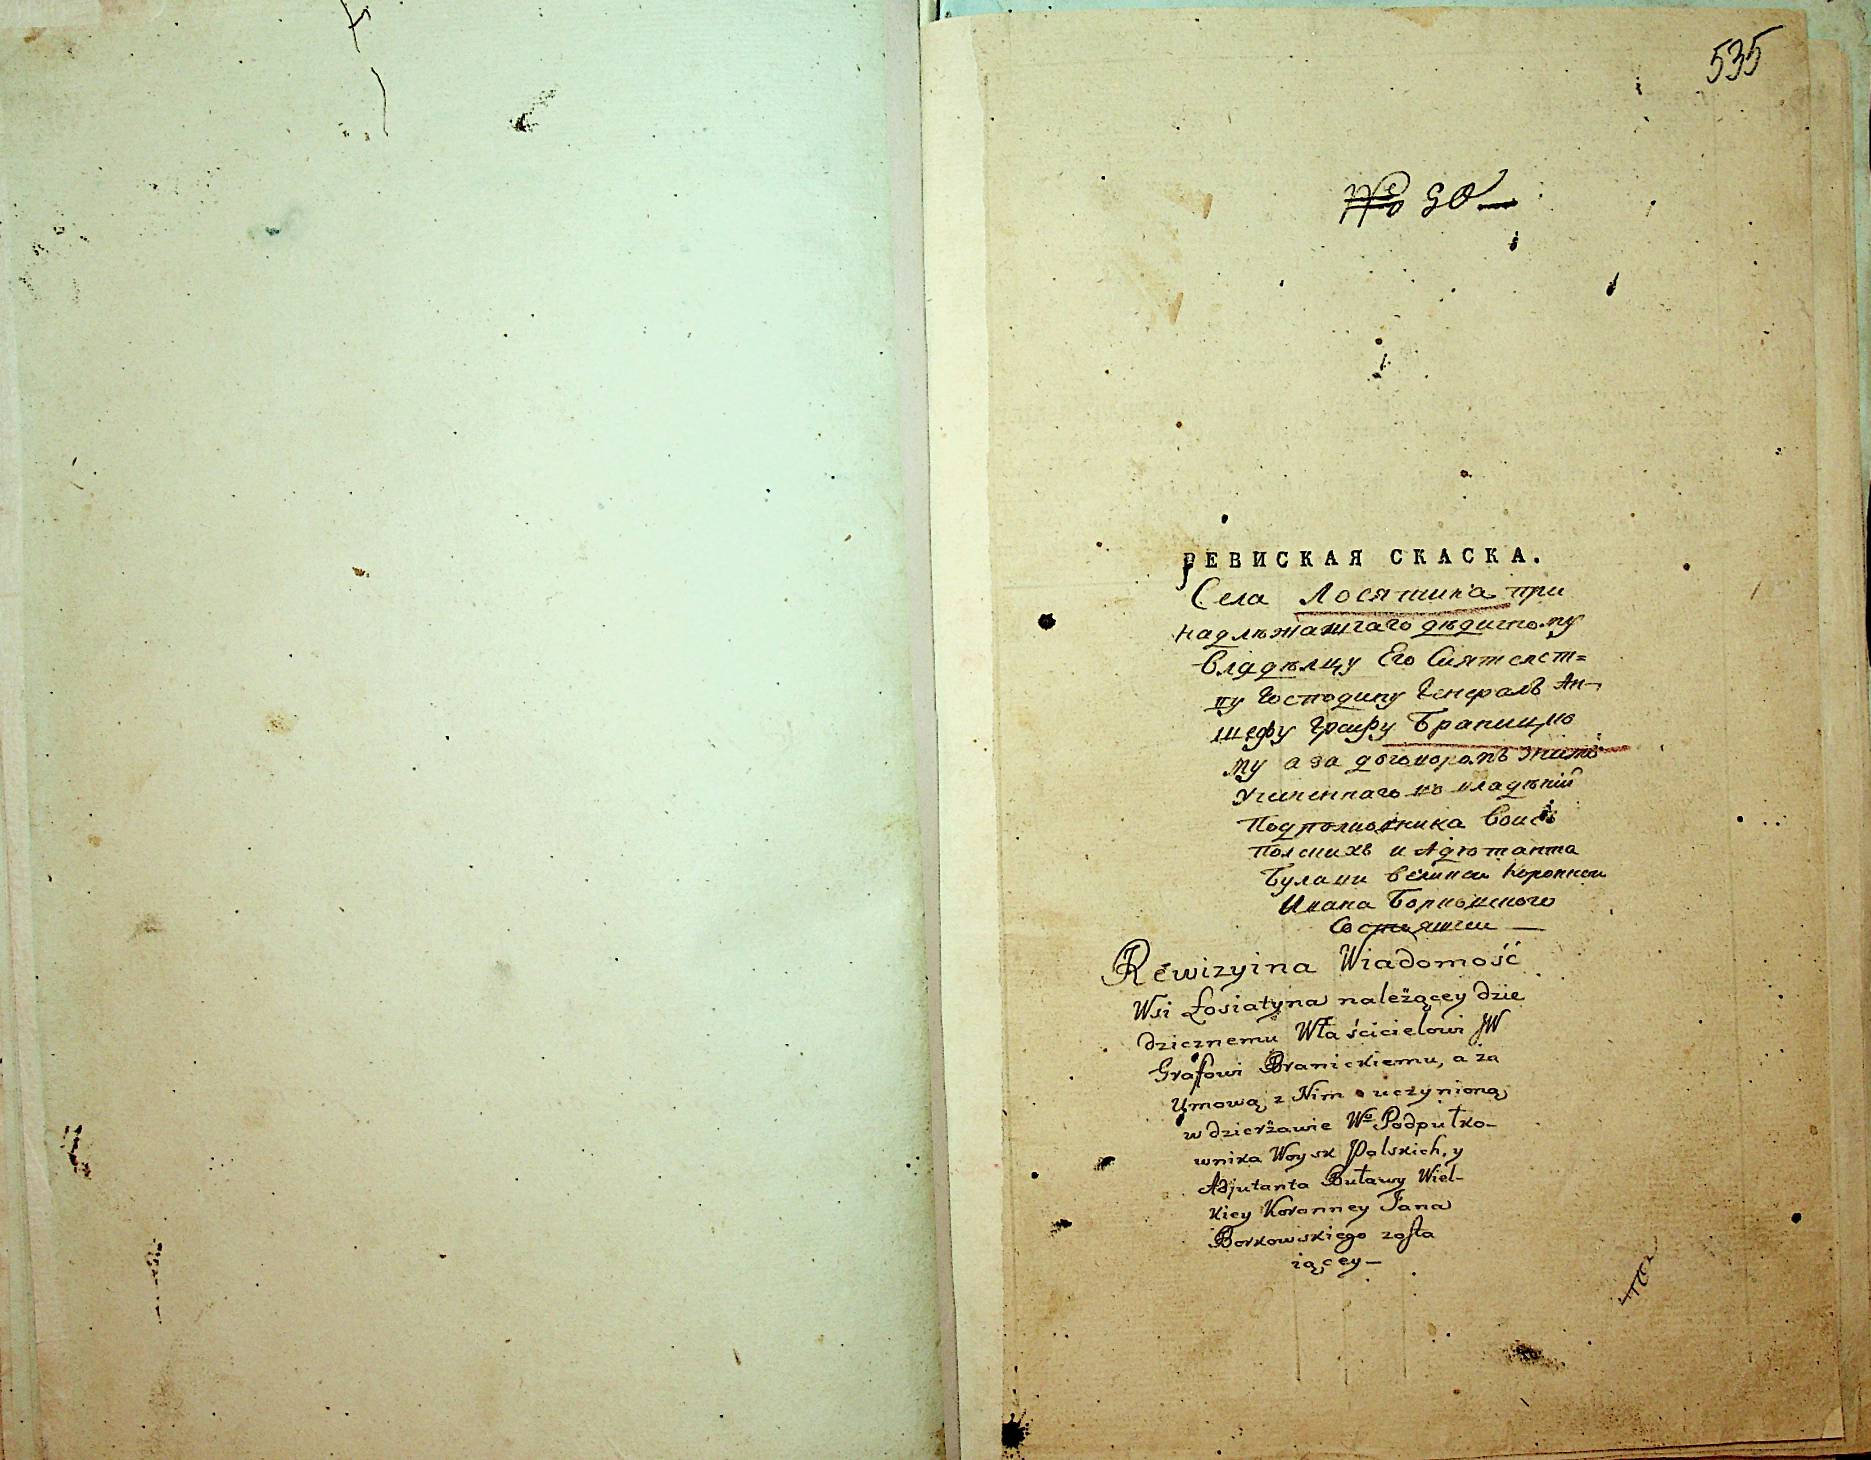 535
№ 90
РЕВИСКАЯ СКАСКА.
Села Лосятина при
надлѣжащаго дѣдичному
владѣлцу Его Сиятелст=
ву Господину Генералъ Ан-
шефу Графу Браницко
му а за договоромъ с нимъ
учиненнаго во владѣнии
Подполковника Войскъ
Полскихъ и Адютанта
Булавы великой коронной
Ивана Борковского
Состоящей —
Rewizyina Wiadomość
Wsi Łosiatyna należącey dzie
dzicznemu Właścicielowi JW
Grafowi Branickiemu, a za
Umową z Nim uczynioną
w dzierżawie Wo Podpułko-
wnika Woysk Polskich, y
Adjutanta Buławy Wiel-
kiey Koronney Jana
Borkowskiego zosta
iącey —